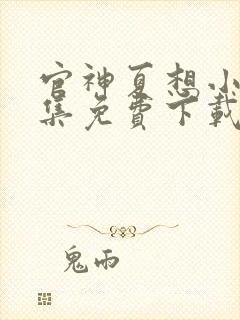 官神夏想小
集免費下載
鬼雨